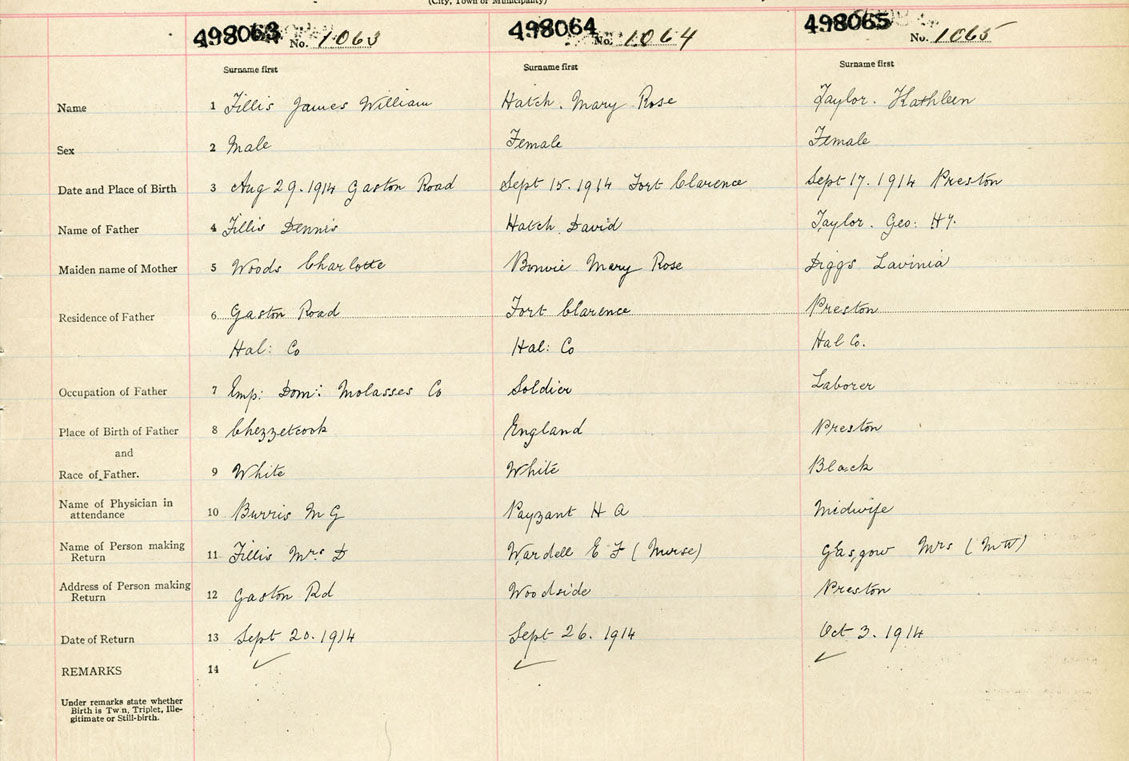 (City, Town or Municipality)
498063 No. 1063 498064 No. 1064 498065 No. 1065
Surname first Surname first Surname first
Name 1 Fillis James William Hatch. Mary Rose Taylor. Kathleen
Sex 2 Male Female Female
Date and Place of Birth 3 Aug 29.1914 Gaston Road Sept 15.1914 Fort Clarence Sept 17.1914 Preston
Name of Father 4 Fillis Dennis Hatch David Taylor. Geo: Hy.
Maiden name of Mother 5 Woods Charlotte Bonvie Mary Rose Diggs Lavinia
Residence of Father 6 Gaston Road Fort Clarence Preston
Hal: Co Hal: Co Hal Co.
Occupation of Father 7 Emp: Dom: Molasses Co Soldier Laborer
Place of Birth of Father 8 Chezzetcook England Preston
and
Race of Father. 9 White White Black
Name of Physician in
attendance 10 Burris M G Payzant H A Midwife
Name of Person making
Return 11 Fillis Mrs D Wardell E F (Nurse) Glasgow Mrs (MW)
Address of Person making
Return 12 Gaston Rd Woodside Preston
Date of Return 13 Sept 20.1914 Sept 26.1914 Oct 3.1914
REMARKS 14
Under remarks state whether
Birth is Twin, Triplet, Ille-
gitimate or Still-birth.